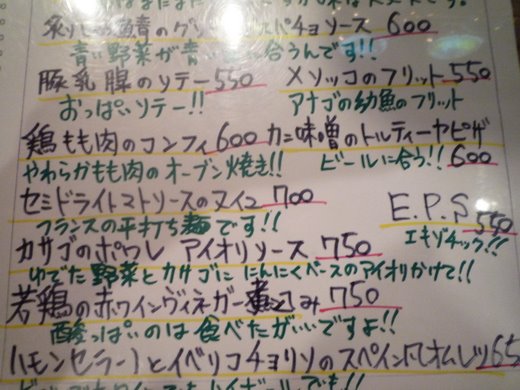 鯖のグリル ガスパチョソース 600
青い野菜が青い に合うんです!!
豚乳腺のソテー 550 メソッコのフリット 550
おっぱいソテー!! アナゴの幼魚のフリット
鶏もも肉のコンフィ 600 カニ味噌のトルティーヤピザ
やわらかもも肉のオーブン焼き!! ビールに合う!! 600
セミドライトマトソースのヌイユ 700
フランスの平打ち麺です!! E.P.S 550
エキゾチック!!
カサゴのポワレ アイオリソース 750
ゆでた野菜とカサゴに にんにくベースのアイオリかけて!!
若鶏の赤ワインヴィネガー煮込み 750
酸っぱいのは食べたがいいですよ!!
ハモンセラーノとイベリコチョリソのスペイン風オムレツ 65